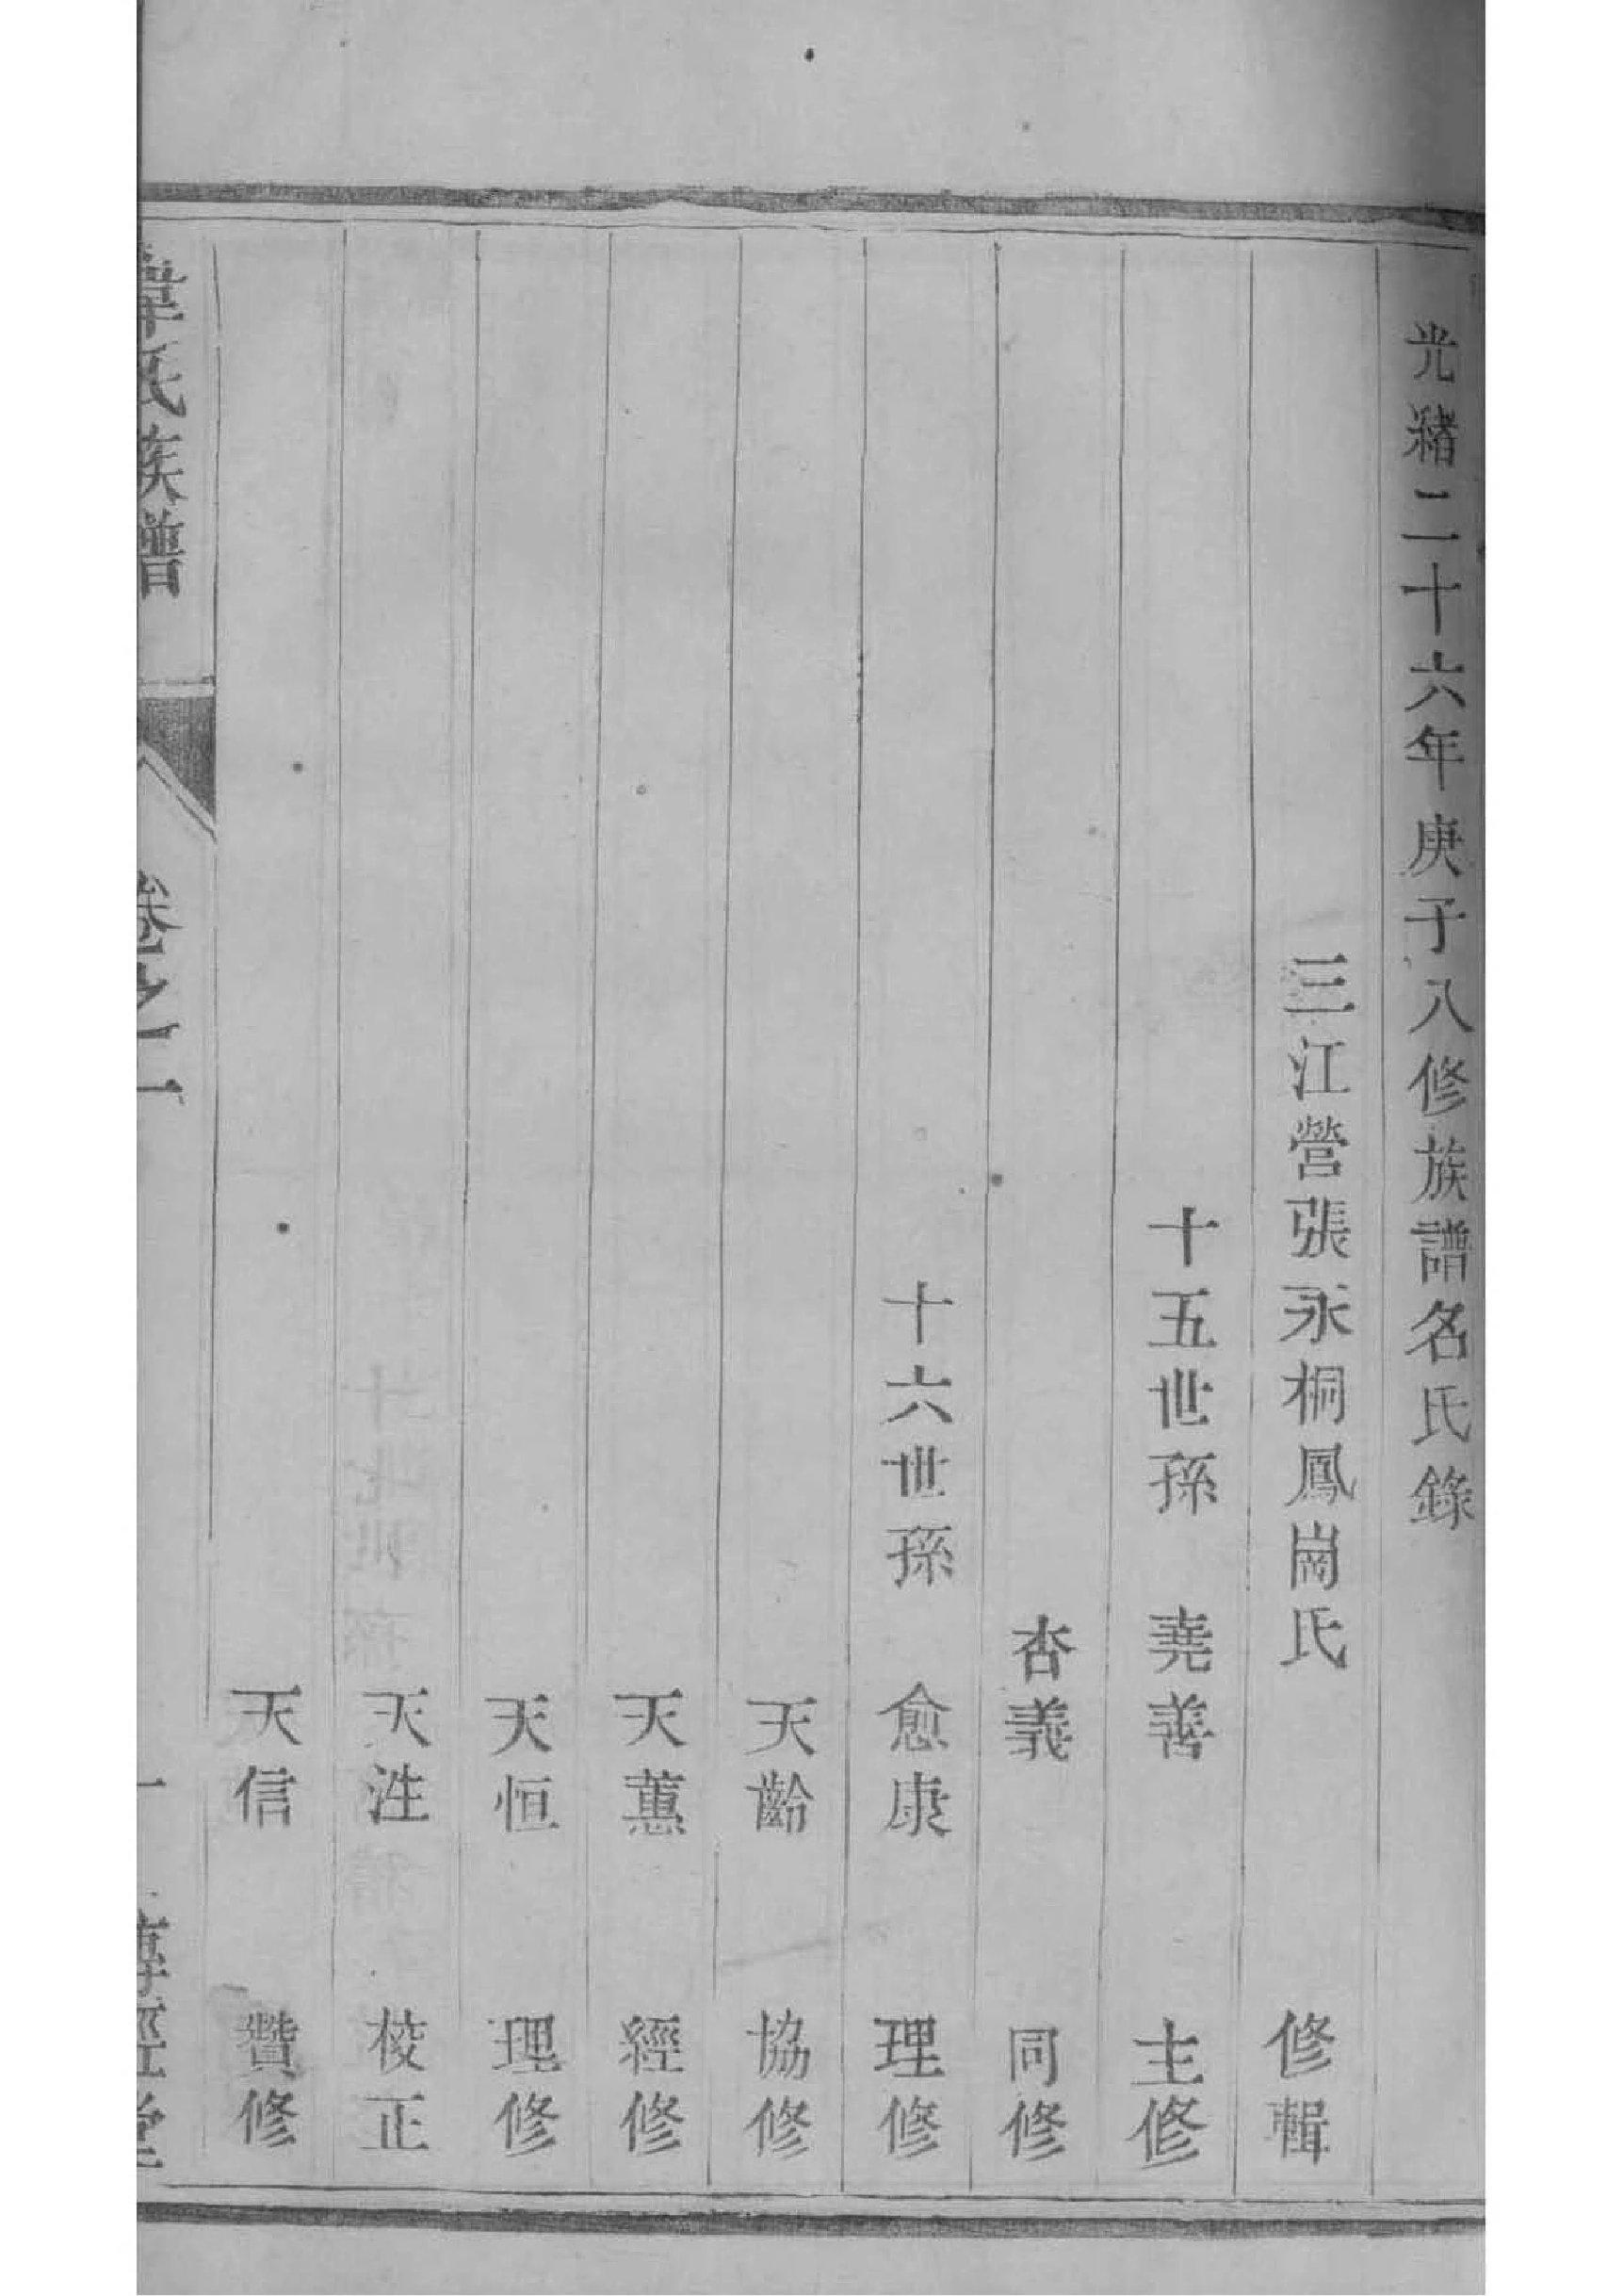 光緒二十六年庚子八修族譜名氏錄
三江營張永桐鳳崗氏 修輯
十五世孫 堯善 主修
杏義 同修
十六世孫 愈康 理修
天齡 協修
天蕙 經修
天恒 理修
天泩 校正
天信 贊修
韋氏族譜 卷之一 一 傳經堂